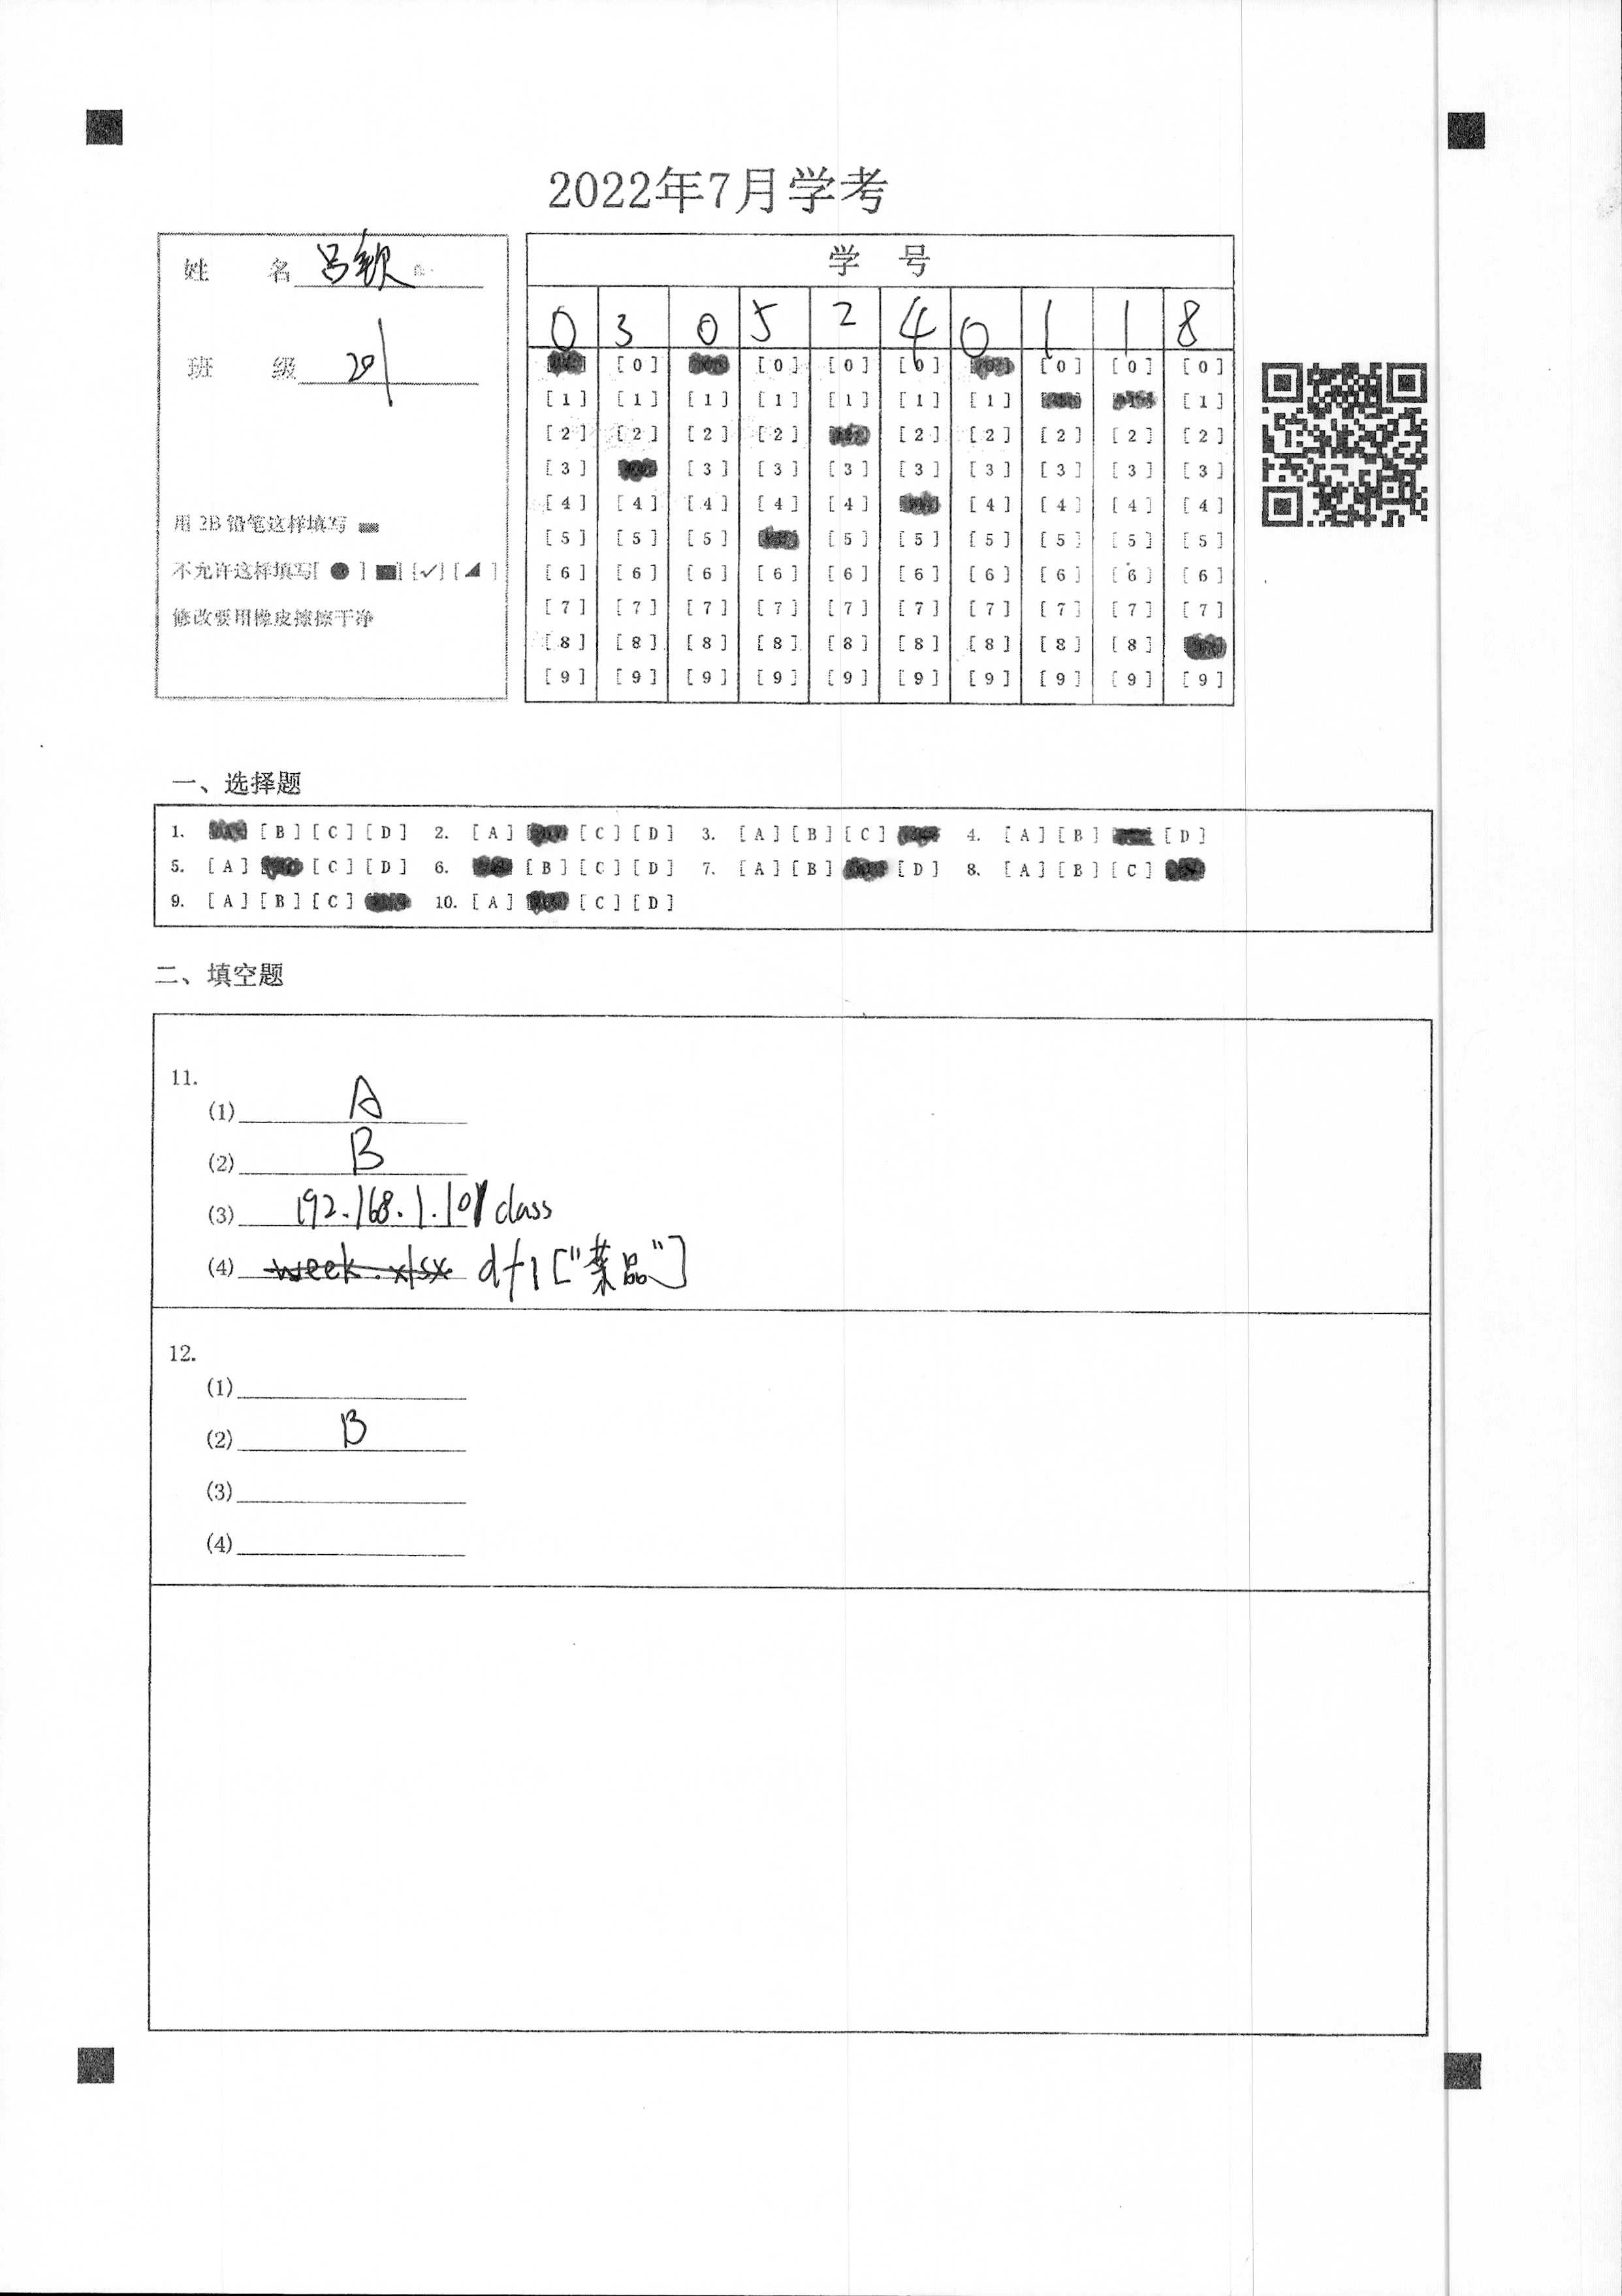 2022年7月学考
姓 名 吕钦
班 级 201
用 2B 铅笔这样填写
不允许这样填写[ ● ] [■] [✓] [◢ ]
修改要用橡皮擦擦干净
学 号
0 3 0 5 2 4 0 1 1 8
[0] [0] [0] [0] [0] [0]
[1] [1] [1] [1] [1] [1] [1] [1]
[2] [2] [2] [2] [2] [2] [2] [2] [2]
[3] [3] [3] [3] [3] [3] [3] [3] [3]
[4] [4] [4] [4] [4] [4] [4] [4] [4]
[5] [5] [5] [5] [5] [5] [5] [5] [5]
[6] [6] [6] [6] [6] [6] [6] [6] [6] [6]
[7] [7] [7] [7] [7] [7] [7] [7] [7] [7]
[8] [8] [8] [8] [8] [8] [8] [8] [8]
[9] [9] [9] [9] [9] [9] [9] [9] [9] [9]
一、选择题
1. [B] [C] [D] 2. [A] [C] [D] 3. [A] [B] [C] 4. [A] [B] [D]
5. [A] [C] [D] 6. [B] [C] [D] 7. [A] [B] [D] 8. [A] [B] [C]
9. [A] [B] [C] 10. [A] [C] [D]
二、填空题
11.
(1) A
(2) B
(3) 192.168.1.101 class
(4) week.xlsx df1["菜品"]
12.
(1)
(2) B
(3)
(4)